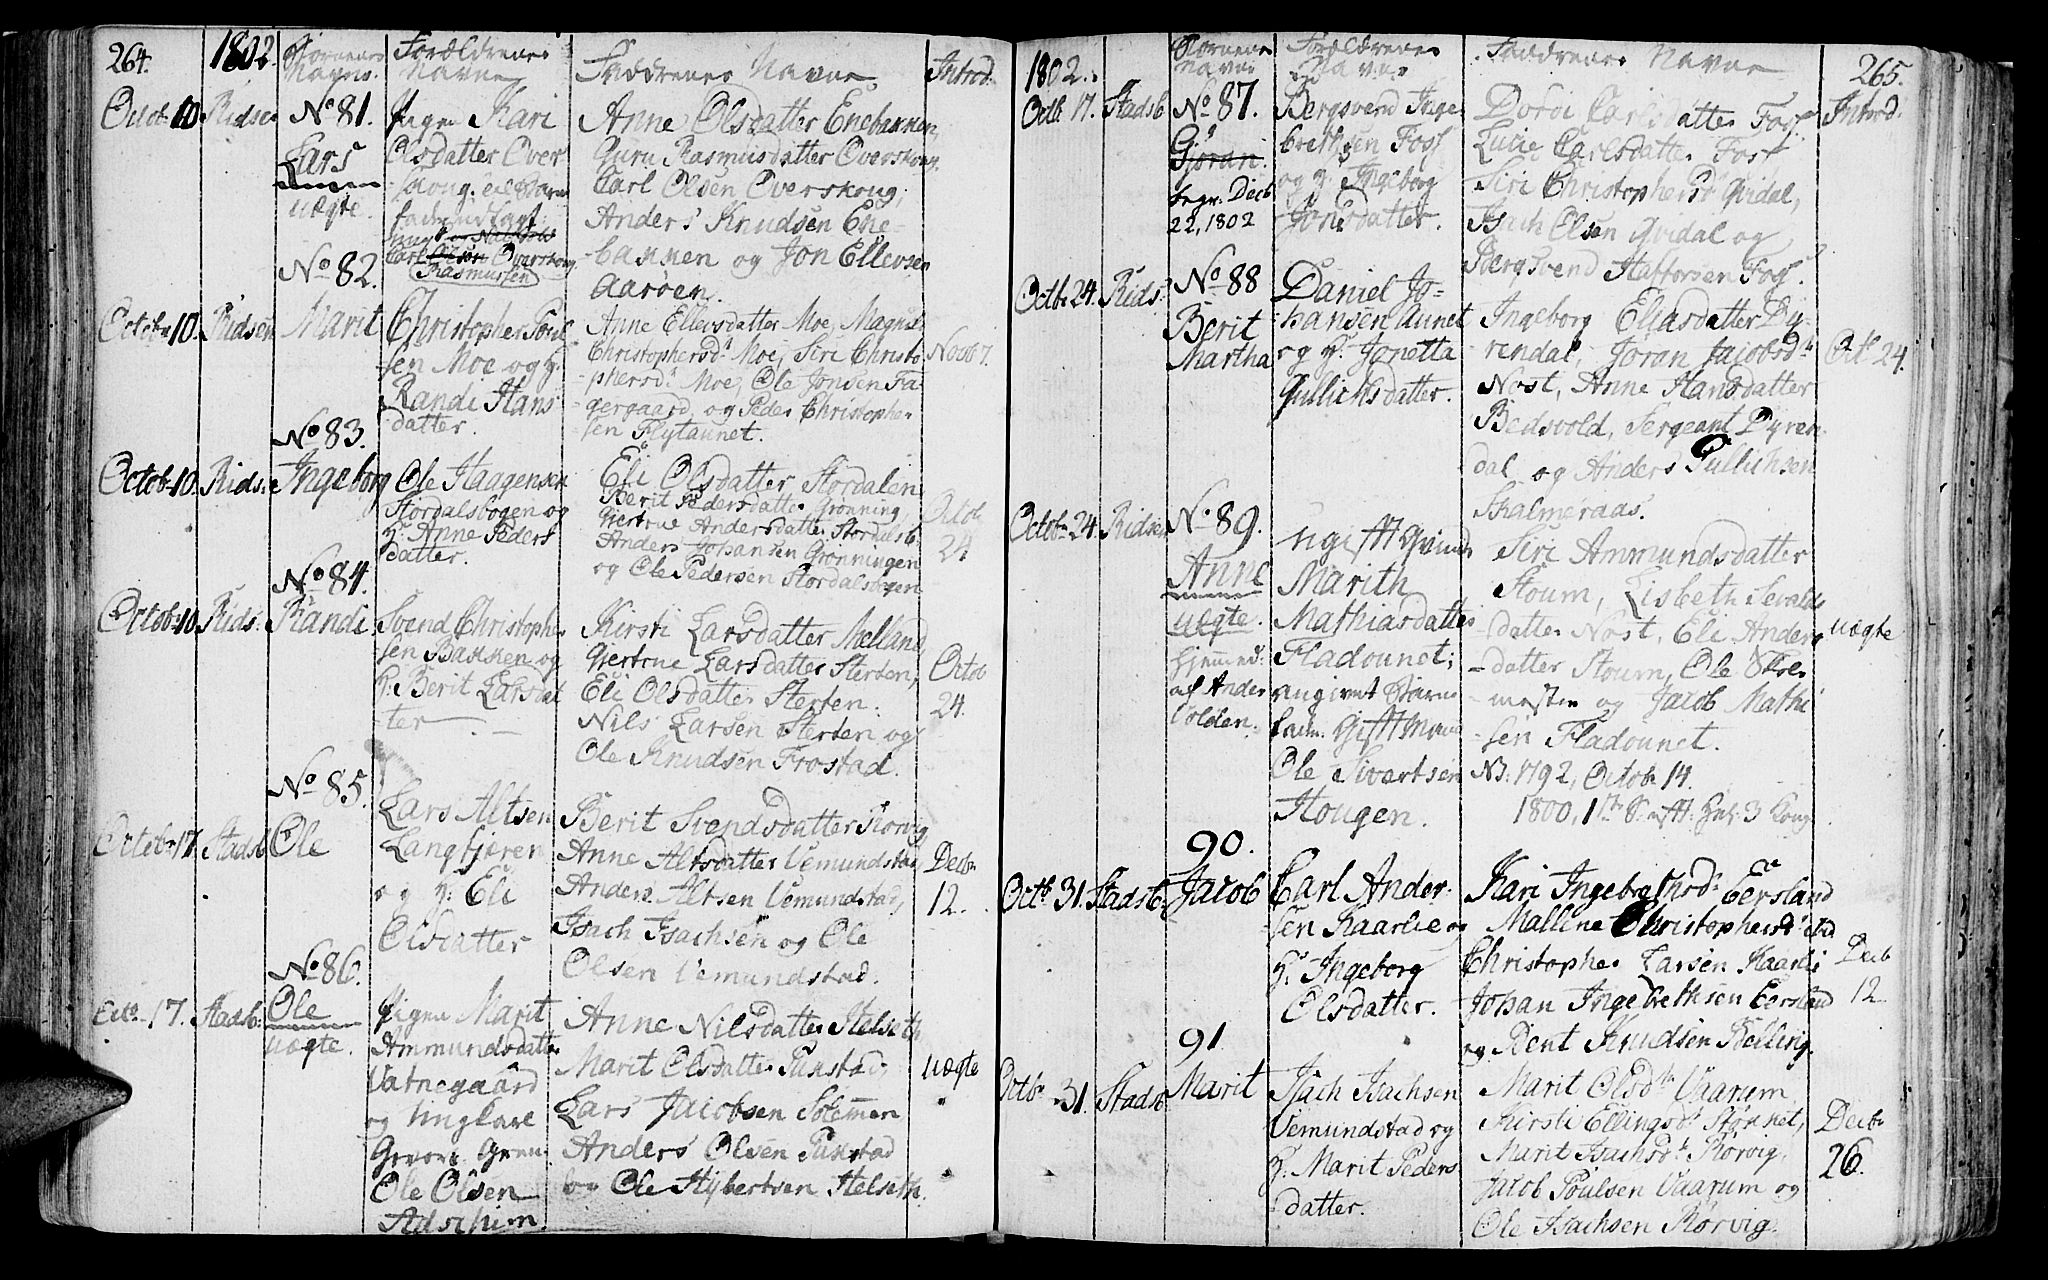 264. 1802. Børnenes Navne. Forældrenes Navne Faddrenes Navne Introd.
Octob. 10 Ridsen No 81. Lars uægte.
Pigen Kari
Olsdatter Over
skoug, et Barne
fader udlagt
Carl Olsen Overskoug
Rasmusen
Anne Olsdatter Enebakken,
Guru Rasmusdatter Overskoug,
Carl Olsen Overskoug,
Anders Knudsen Ene-
bakken og Jon Ellevsen
Aarøen.
No 82.
Octobr 10. Ridsen Marit
Christopher Poul-
sen Moe og H.
Randi Hans
datter.
Anne Ellevsdatter Moe, Magnil
Christophersdr Moe, Siri Christo-
phersdr Moe, Ole Jonsen Fa-
gergaard, og Peder Christopher-
sen Flytaunet.
Novb 7.
No 83.
Octob. 10. Rids: Ingeborg
Ole Haagensen
Stordalsbogen og
H. Anne Peders
datter.
Eli Olsdatter Stordalen
Berit Pedersdatter Grønning
Gjertrue Andersdatter Stordalsb.
Anders Johansen Grønningen
og Ole Pedersen Stordalsbogen
Octob.
24
No 84.
Octob. 10 Rids: Randi
Svend Christopher-
sen Bakken og
H. Berit Larsdat
ter
Kirsti Larsdatter Mælland,
Gjertrue Larsdatter Sterten,
Eli Olsdatter Sterten.
Nils Larsen Sterten og
Ole Knudsen Frostad.
Octob
24.
No 85.
Octobr 17. Stadsb Ole
Lars Altsen
Langfjæren
og H. Eli
Olsdatter
Berit Svendsdatter Rørvig,
Anne Altsdatter Uemundstad
Anders Altsen Uemundstad,
Isach Isachsen og Ole
Olsen Uemundstad.
Decbr
12.
No 86.
Octb. 17. Stadsb: Ole
uægte.
Pigen Marit
Ammundsdatter
Vatnegaard
og Ungkarl
Ole Olsen
Anne Nilsdatter Helseth
Marit Olsdatter Pukstad
Lars Jacobsen Solemen
Anders Olsen Pukstad
og Ole Hybertsen Helseth.
uægte
1802. Børnene Navne Forældrenes Navne Faddrenes Navne 265.
Octb 17. Stadsb No 87.
Gjøran
begr. Decb
22, 1802
Bergsvend Inge-
brethsen Fos
og H. Ingeborg
Jonsdatter.
Dordi Carlsdatter Fos.
Lucie Carlsdatter Fos
Siri Christophersdr Qvidal,
Isach Olsen Qvidal og
Bergsvend Hafforsen Fos.
Introd.
Octb 24. Rids: No 88
Berit
Martha
Daniel Jo-
hansen Aunet
og H. Jonetta
Gullichsdatter.
Ingeborg Eliasdatter Dy-
rendal, Jøran Jacobsdr
Nost, Anne Hansdatter
Bedsvold, Sergeant Dyren
dal og Anders Gullichsen
Skalmeraas.
Octb 24.
Octobr 24. Ridsen No 89.
Anne
uægte.
hjemmed:
af Anders
Volden.
Ugift Qvinde
Marith
Mathiasdatter
Fladounet;
angivet Barne
fader. Gift Mand
Ole Sivertsen
Hougen.
Siri Ammundsdatter
Stoum, Lisbeth Sevalds
datter Nost, Eli Anders
datter Stoum, Ole Skole
mester og Jacob Mathi
sen Fladounet.
N3: 1792, Octob. 14.
1800, 1te S.
uægte
90.
Octb 31. Stadsb. Jacob
Carl Ander
sen Kaarlie og
H. Ingeborg
Olsdatter.
Kari Ingebrethsdr Eersland
Mallene Christophersdr ibd
Christopher Larsen Kaarli
Johan Ingebrethsen Eersland
og Bent Knudsen Belling.
Decb
12
91
Octb. 31. Stadsb Marit
Isach Isachsen
Uemundstad og
H. Marit Peders
datter.
Marit Olsdtr Vaarum,
Kirsti Ellingsdr Støkket,
Marit Isachsdr Rørvig,
Jacob Poulsen Vaarum og
Ole Isachsen Rørvig.
Decbr
26.